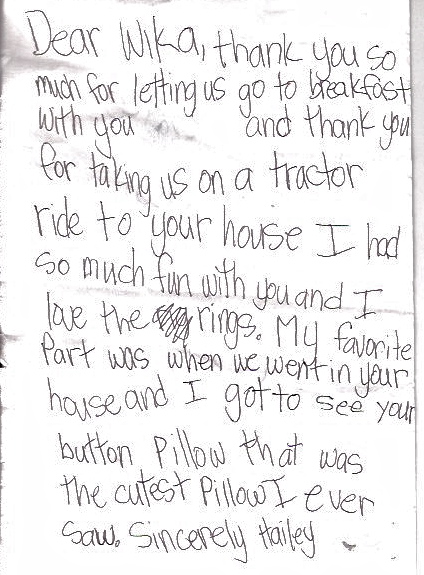 Dear Wika, thank you so
much for letting us go to breakfast
with you and thank you
for taking us on a tractor
ride to your house I had
so much fun with you and I
love the rings. My favorite
Part was when we went in your
house and I got to see your
button Pillow that was
the cutest Pillow I ever
saw. Sincerely Hailey